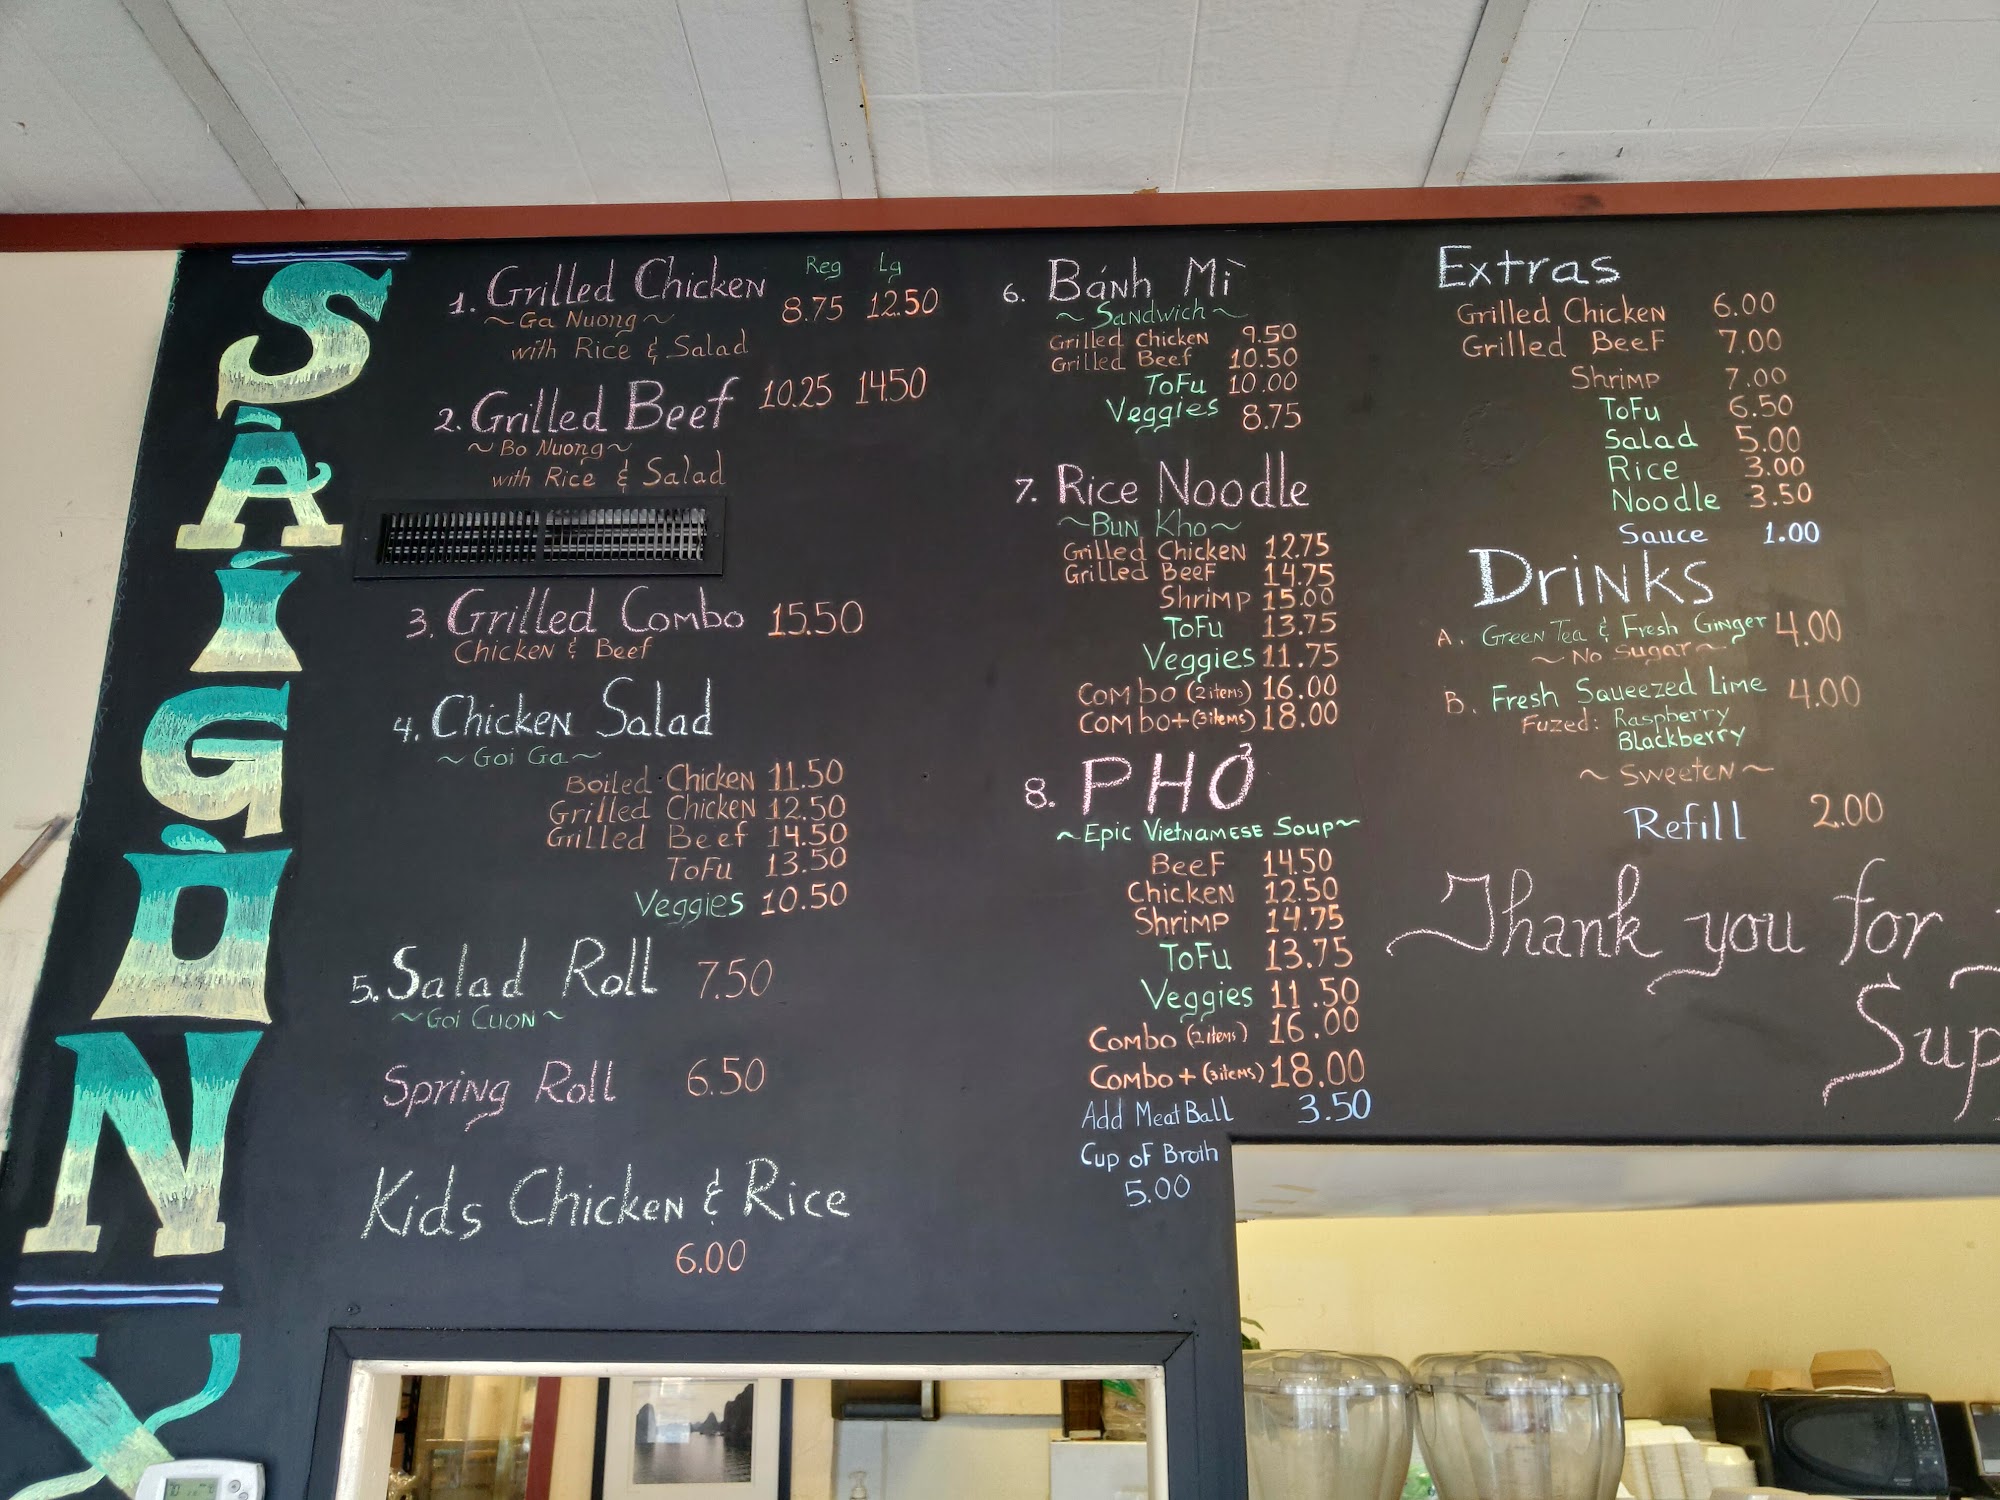 SAIGON
Reg Lg
1. Grilled Chicken 8.75 12.50
~Ga Nuong~
with Rice & Salad
2. Grilled Beef 10.25 14.50
~Bo Nuong~
with Rice & Salad
3. Grilled Combo 15.50
Chicken & Beef
4. Chicken Salad
~Goi Ga~
Boiled Chicken 11.50
Grilled Chicken 12.50
Grilled Beef 14.50
ToFu 13.50
Veggies 10.50
5. Salad Roll 7.50
~Goi Cuon~
Spring Roll 6.50
Kids Chicken & Rice
6.00
6. Bánh Mì
~Sandwich~
Grilled Chicken 9.50
Grilled Beef 10.50
ToFu 10.00
Veggies 8.75
7. Rice Noodle
~Bun Kho~
Grilled Chicken 12.75
Grilled Beef 14.75
Shrimp 15.00
ToFu 13.75
Veggies 11.75
Combo (2 items) 16.00
Combo+ (3 items) 18.00
8. PHỞ
~Epic Vietnamese Soup~
Beef 14.50
Chicken 12.50
Shrimp 14.75
ToFu 13.75
Veggies 11.50
Combo (2 items) 16.00
Combo+ (3 items) 18.00
Add Meat Ball 3.50
Cup of Broth
5.00
Extras
Grilled Chicken 6.00
Grilled Beef 7.00
Shrimp 7.00
ToFu 6.50
Salad 5.00
Rice 3.00
Noodle 3.50
Sauce 1.00
Drinks
A. Green Tea & Fresh Ginger 4.00
~No Sugar~
B. Fresh Squeezed Lime 4.00
Fuzed: Raspberry
Blackberry
~Sweeten~
Refill 2.00
Thank you for
Sup